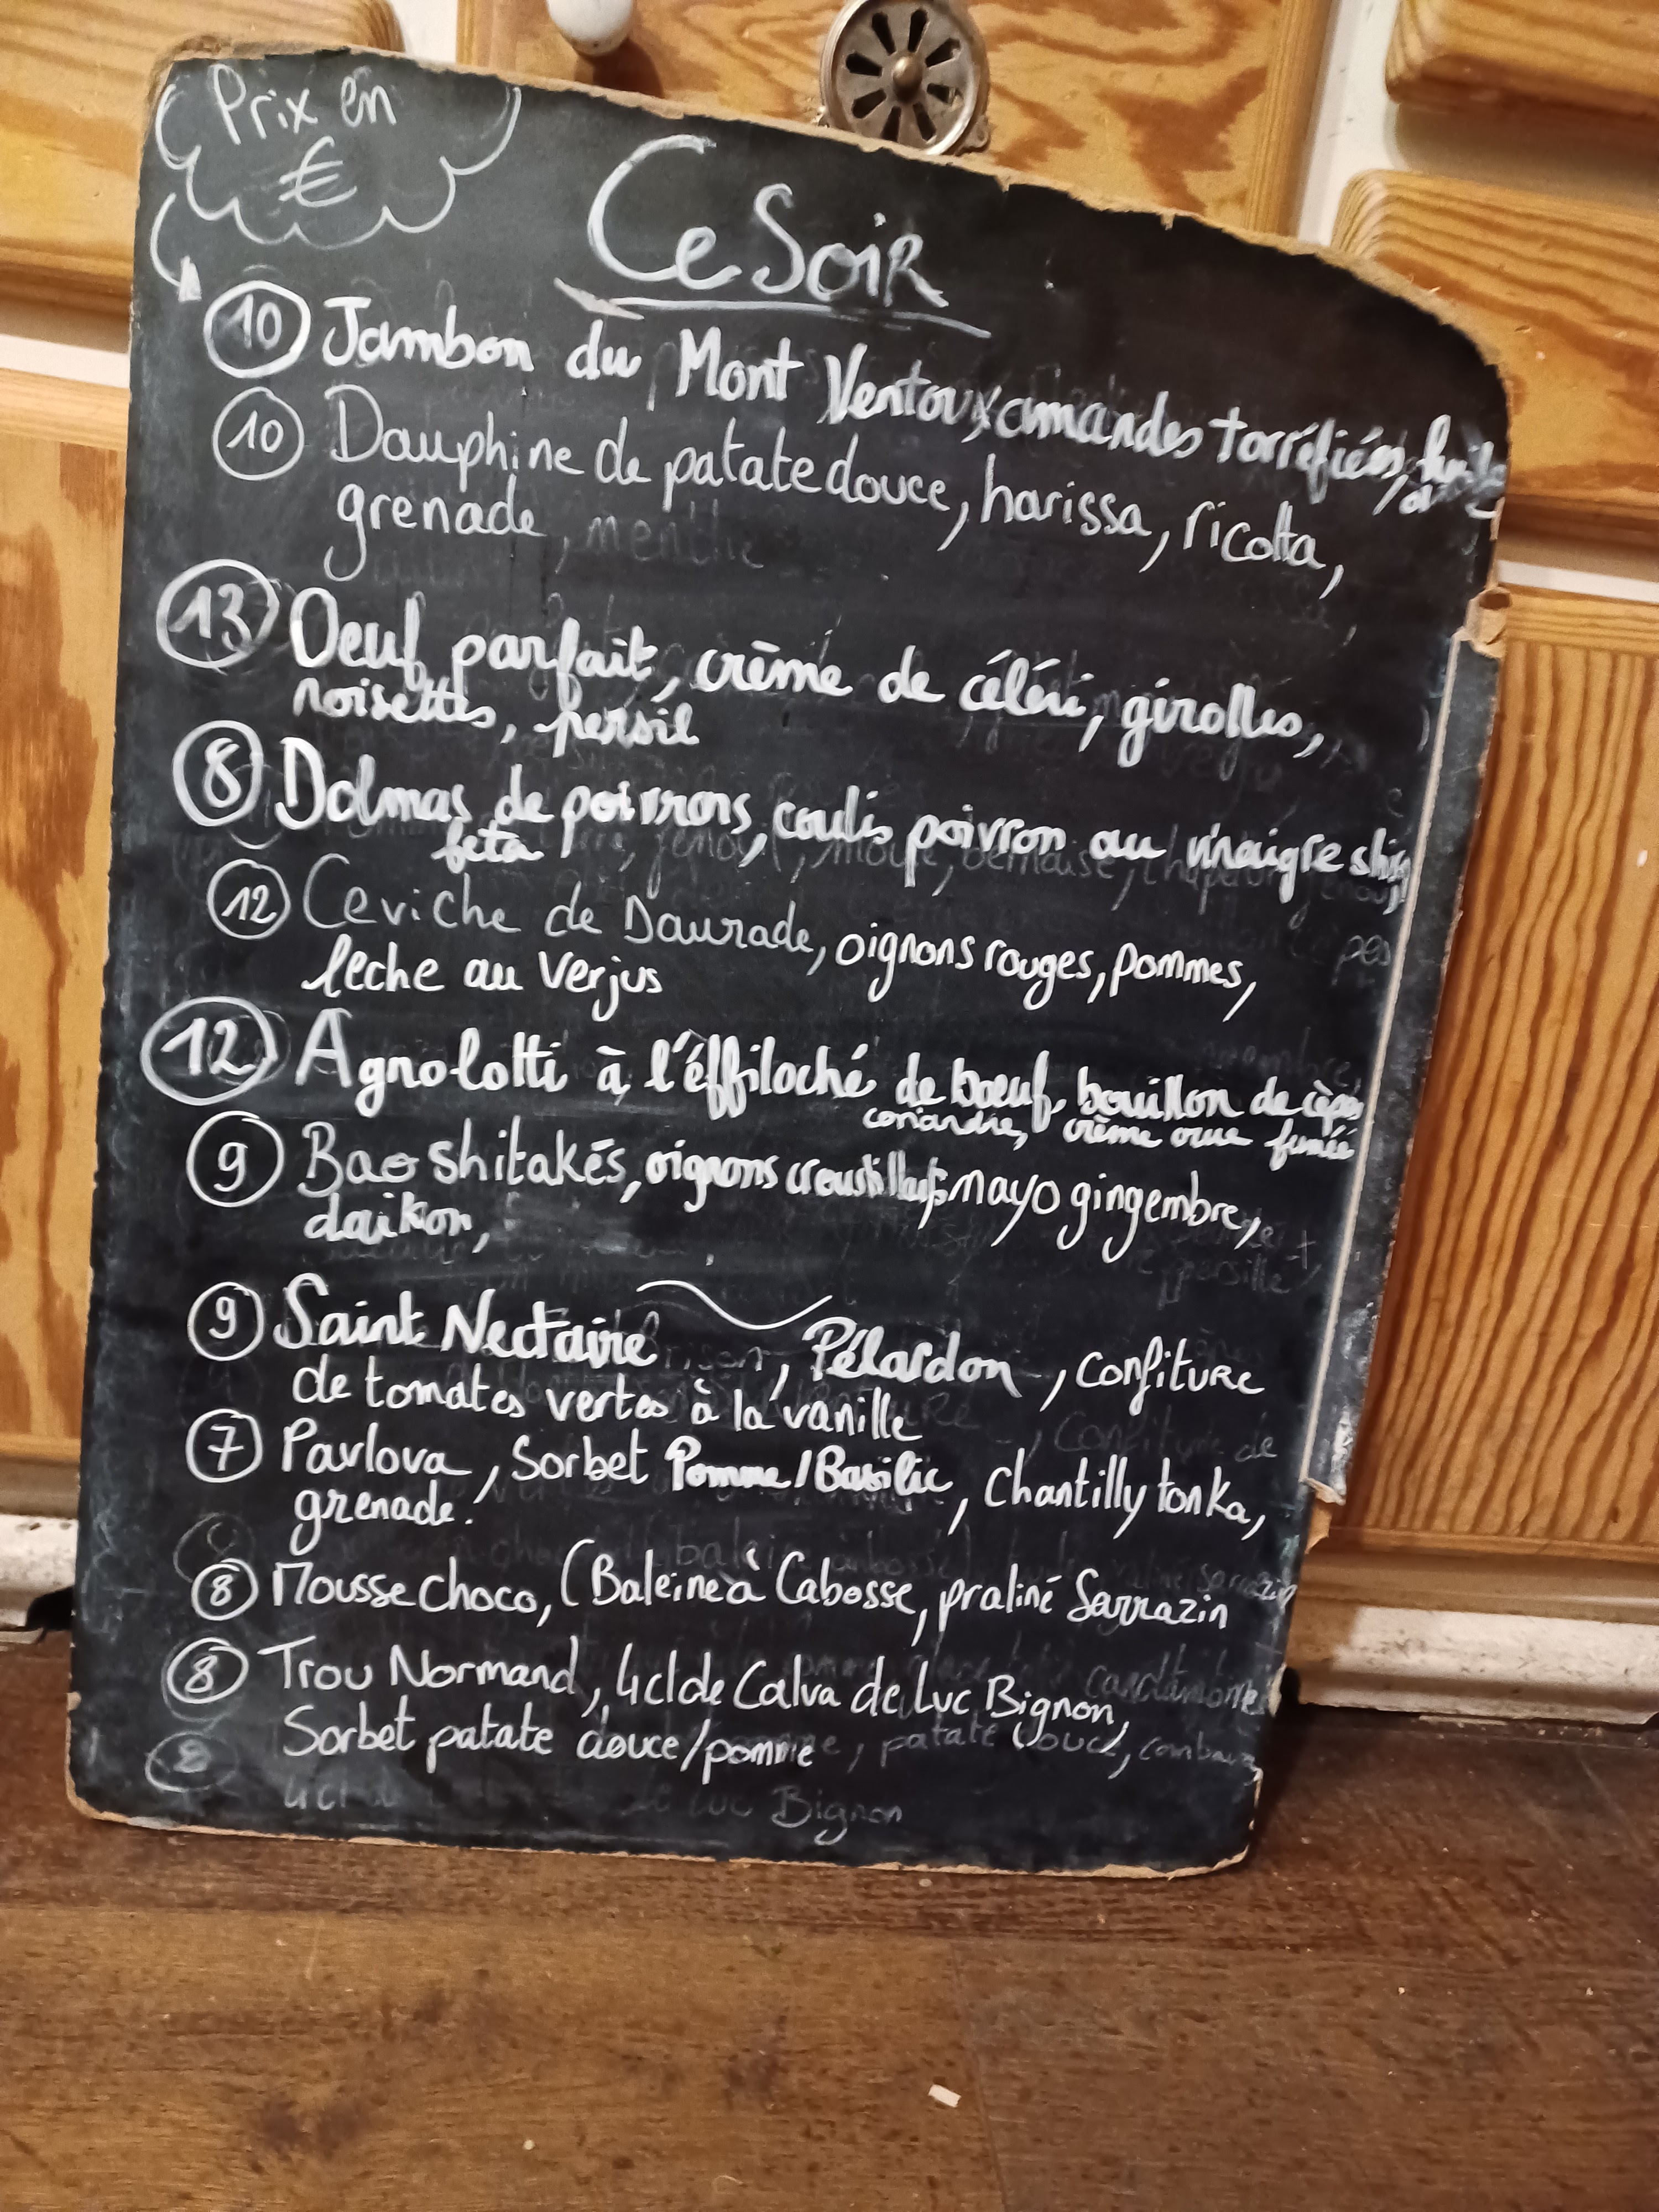 Prix en
€
Ce Soir
10 Jambon du Mont Ventoux, amandes torréfiées, huile
10 Dauphine de patate douce, harissa, ricotta,
grenade, menthe
13 Oeuf parfait, crème de céléri, girolles,
noisettes, persil
8 Dolmas de poivrons, coulis poivron au vinaigre
feta
12 Ceviche de Daurade, oignons rouges, pommes,
leche au verjus
12 Agnolotti à l'éffiloché de boeuf, bouillon de cèpes
coriandre, crème crue fumée
9 Bao shitakés, oignons croustillants, mayo gingembre,
daikon,
9 Saint Nectaire, Pélardon, confiture
de tomates vertes à la vanille
7 Pavlova, Sorbet Pomme/Basilic, Chantilly tonka,
grenade.
8 Mousse choco, (Baleine à Cabosse, praliné Sarrazin
8 Trou Normand, 4cl de Calva de Luc Bignon,
Sorbet patate douce/pomme